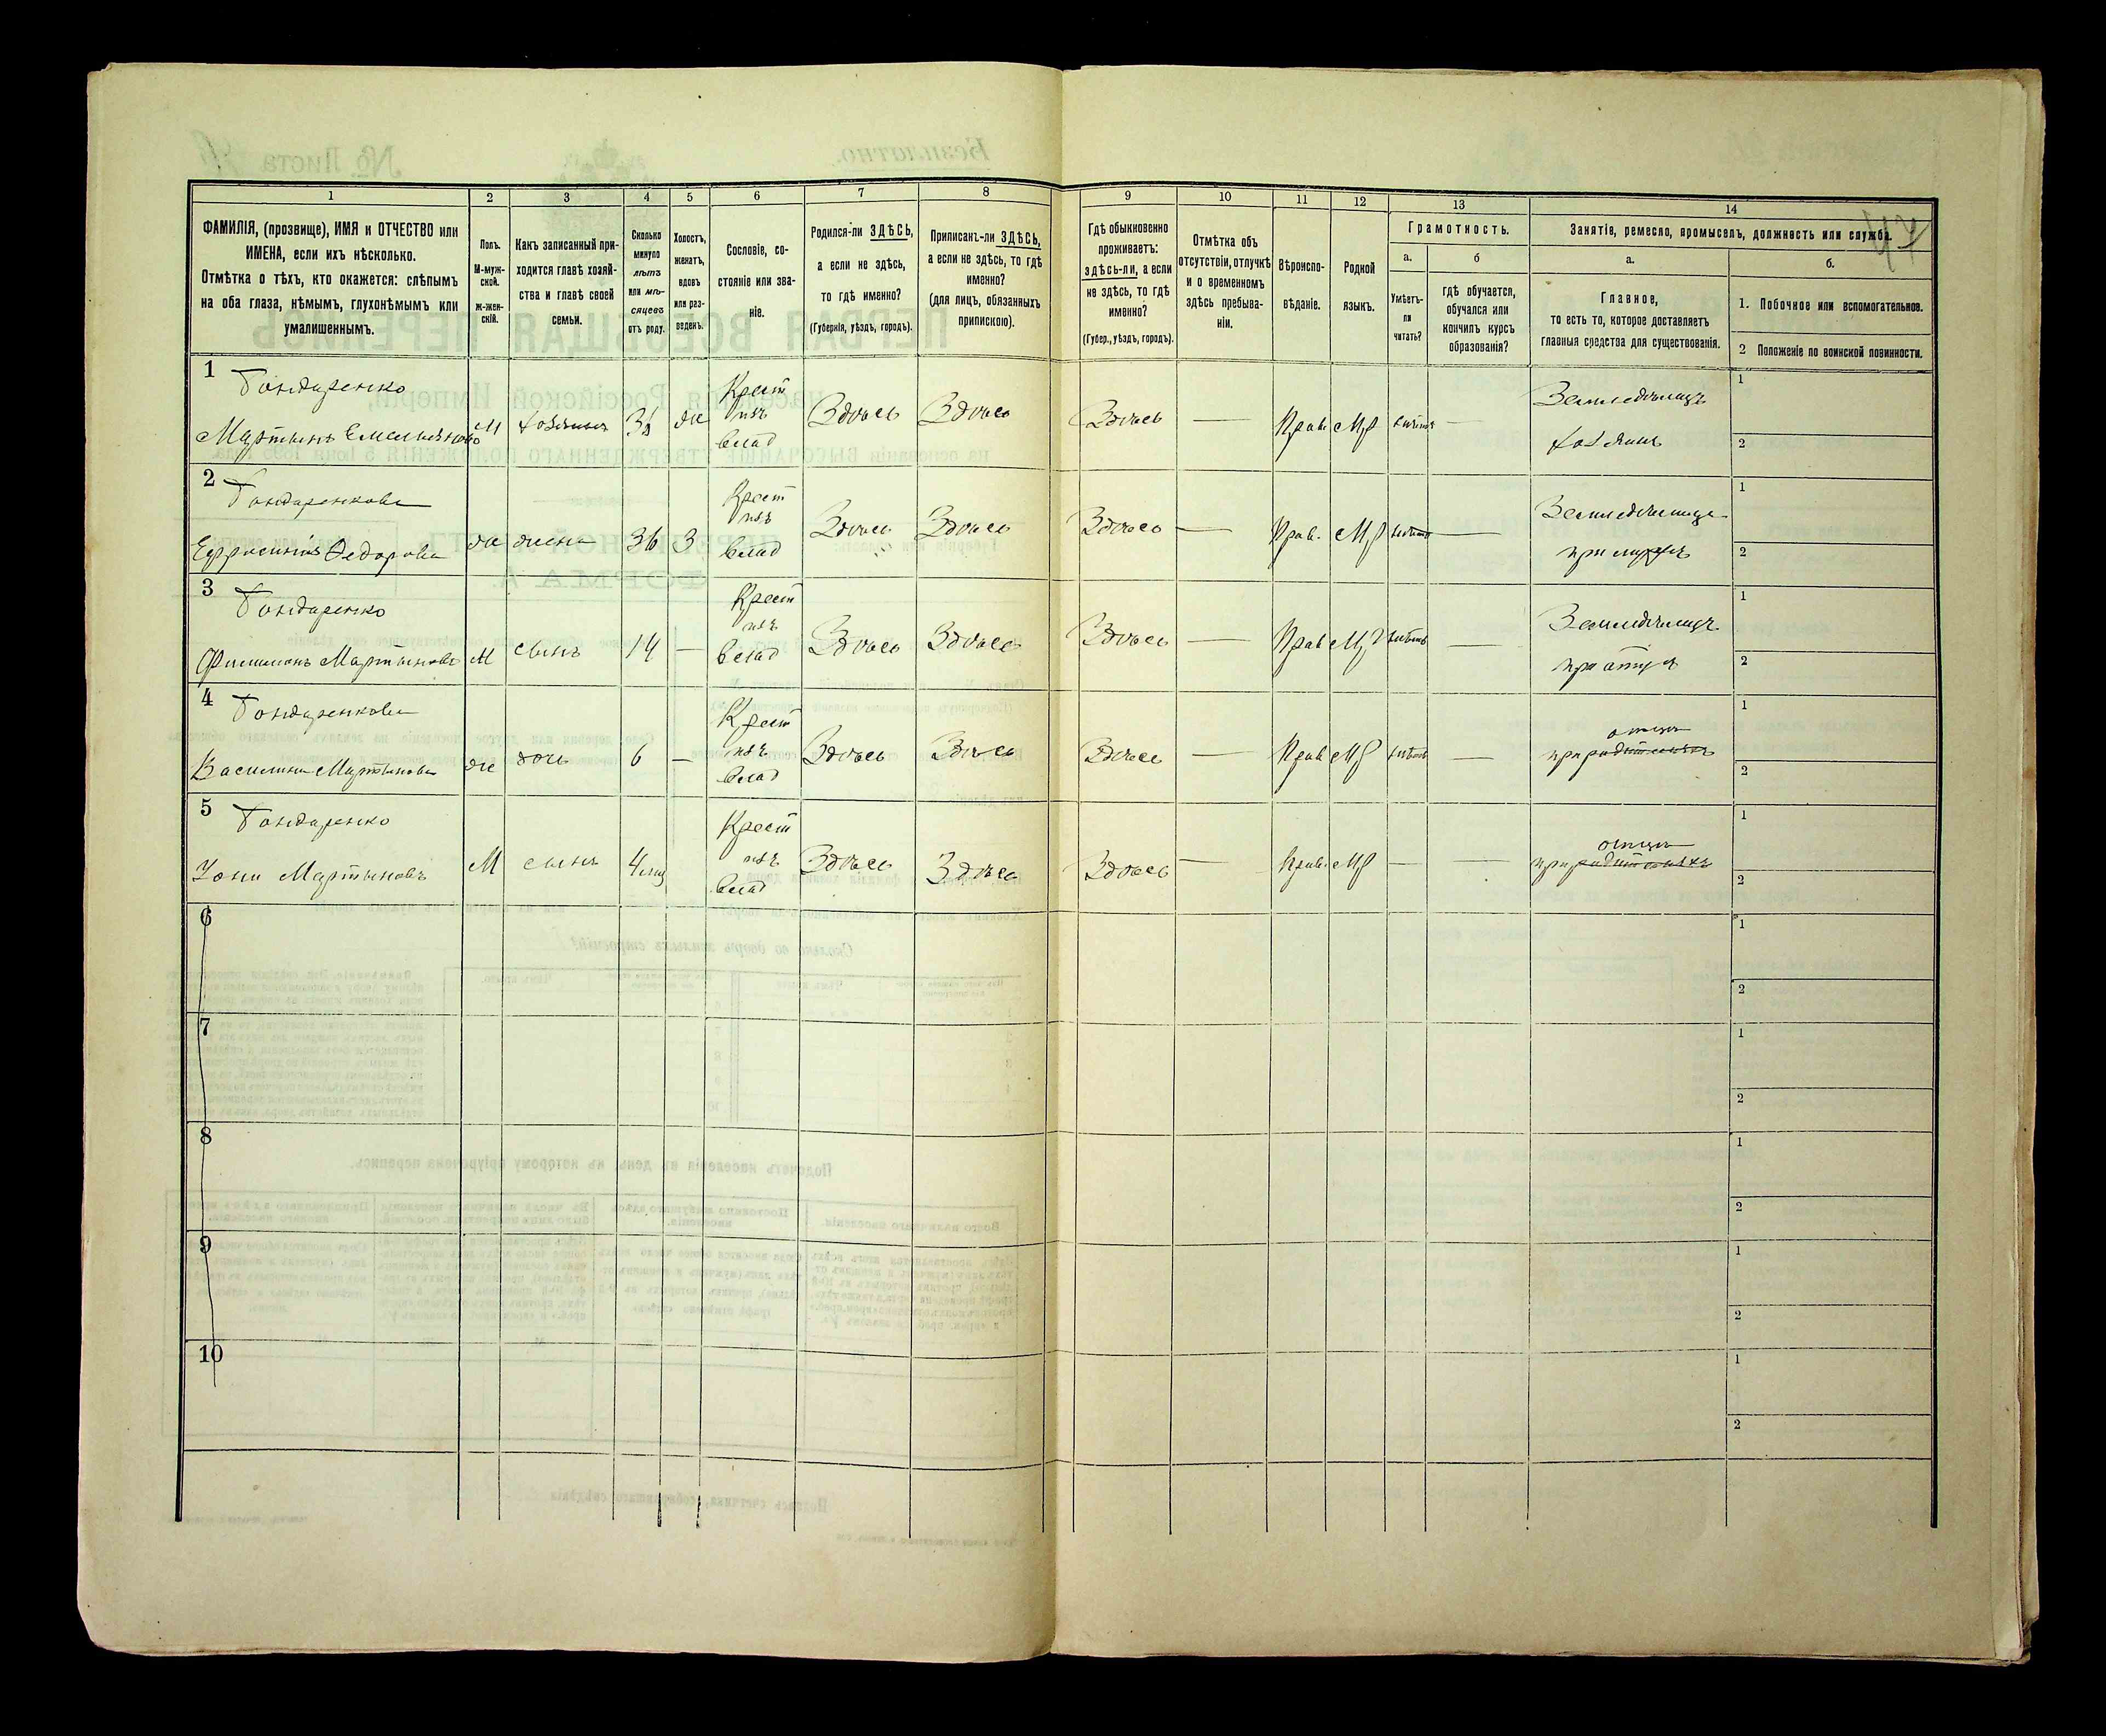 1 2 3 4 5 6 7 8 9 10 11 12 13 14
ФАМИЛІЯ, (прозвище), ИМЯ и ОТЧЕСТВО или
ИМЕНА, если ихъ нѣсколько.
Отмѣтка о тѣхъ, кто окажется: слѣпымъ
на оба глаза, нѣмымъ, глухонѣмымъ или
умалишеннымъ.
Полъ.
М-муж-
ской.
Ж-жен-
скій.
Какъ записанный при-
ходится главѣ хозяй-
ства и главѣ своей
семьи.
Сколько
минуло
лѣтъ
или мѣ-
сяцевъ
отъ роду.
Холостъ,
женатъ,
вдовъ
или раз-
веденъ.
Сословіе, со-
стояніе или зва-
ніе.
Родился-ли ЗДѢСЬ,
а если не здѣсь,
то гдѣ именно?
(Губернія, уѣздъ, городъ).
Приписанъ-ли ЗДѢСЬ,
а если не здѣсь, то гдѣ
именно?
(для лицъ, обязанныхъ
припискою).
Гдѣ обыкновенно
проживаетъ:
здѣсь-ли, а если
не здѣсь, то гдѣ
именно?
(Губер., уѣздъ, городъ).
Отмѣтка объ
отсутствіи, отлучкѣ
и о временномъ
здѣсь пребыва-
ніи.
Вѣроиспо-
вѣданіе.
Родной
языкъ.
Грамотность.
а.
Умѣетъ-
ли
читать?
б
гдѣ обучается,
обучался или
кончилъ курсъ
образованія?
Занятіе, ремесло, промыселъ, должность или служба.
а.
Главное,
то есть то, которое доставляетъ
главныя средства для существованія.
б.
1. Побочное или вспомогательное.
2 Положеніе по воинской повинности.
1 Бондаренко Крест Земледѣлецъ 1
Мартынъ Емельяновъ М хозяинъ же изъ влад Здѣсь Здѣсь Здѣсь — Прав. МР — хозяинъ 2
2 Бондаренкова Крест Земледѣлица 1
Ефросинія Федорова же жена 36 З изъ влад Здѣсь Здѣсь Здѣсь — Прав. МР — при мужѣ 2
3 Бондаренко Крест Земледѣлецъ 1
Филимонъ Мартыновъ М сынъ 14 — изъ влад Здѣсь Здѣсь Здѣсь — Прав МР — при отцѣ 2
4 Бондаренкова Крест отцѣ 1
Василина Мартынова же дочь 6 — изъ влад Здѣсь Здѣсь Здѣсь — Прав МР — при родителяхъ 2
5 Бондаренко Крест отцѣ 1
Мартыновъ М сынъ 4 мѣс изъ влад Здѣсь Здѣсь Здѣсь — Прав. МР — — при родителяхъ 2
6 1
2
7 1
2
8 1
2
9 1
2
10 1
2